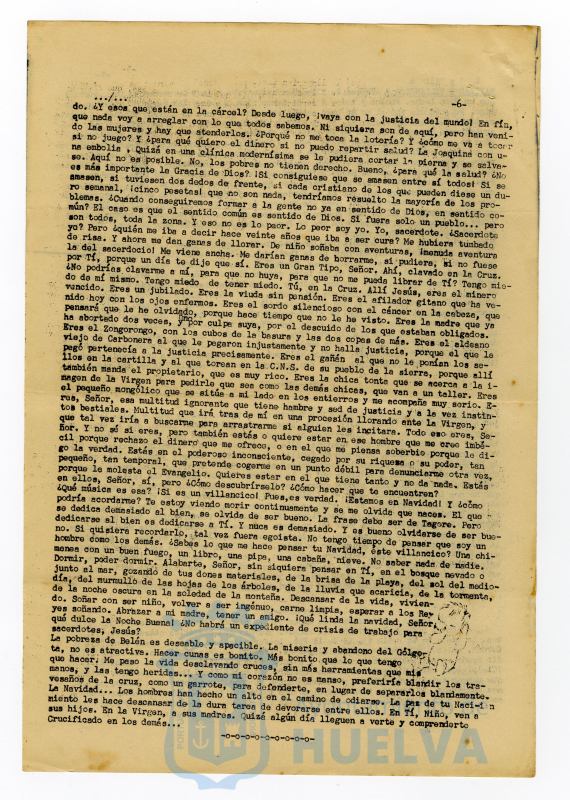 .../...
-6-
do. ¿Y esos que están en la cárcel? Desde luego, ¡vaya con la justicia del mundo! En fín,
que nada voy a arreglar con lo que todos sabemos. Ni siquiera son de aquí, pero han veni-
do las mujeres y hay que atenderlos. ¿Porqué no me toca la lotería? Y ¿cómo me va a tocar
si no juego? Y ¿para qué quiero el dinero si no puedo repartir salud? La Joaquina con u-
na embolia . Quizá en una clínica modernísima se le pudiera cortar la pierna y se salva-
se. Aquí no es posible. No, los pobres no tienen derecho. Bueno, ¿para qué la salud? ¿No
es más importante la Gracia de Dios? ¡Si consiguiese que se amasen entre sí todos! Si se
amasen, si tuviesen dos dedos de frente, si cada cristiano de los que pueden diese un du-
ro semanal, ¡cinco pesetas! que no son nada, tendríamos resuelto la mayoría de los pro-
blemas. ¿Cuando conseguiremos formar a la gente no ya en sentido de Dios, en sentido co-
mún? El caso es que el sentido común es sentido de Dios. Si fuera solo un pueblo... pero
son todos, toda la zona. Y eso no es lo peor. Lo peor soy yo. Yo, sacerdote. ¿Sacerdote
yo? Pero ¿quién me iba a decir hace veinte años que iba a ser cura? Me hubiera tumbado
de risa. Y ahora me dan ganas de llorar. De niño soñaba con aventuras, ¡menuda aventura
la del sacerdocio! Me viene ancha. Me darían ganas de borrarme, si pudiera, si no fuese
por Tí, porque un día te dije que sí. Eres un Gran Tipo, Señor. Ahí, clavado en la Cruz.
¿No podrías clavarme a mí, para que no huya, para que no me pueda librar de Tí? Tengo mie-
do de mí mismo. Tengo miedo de tener miedo. Tú, en la Cruz. Allí Jesús, eres el minero
vencido. Eres un jubilado. Eres la viuda sin pensión. Eres el afilador gitano que ha ve-
nido hoy con los ojos enfermos. Eres el sordo silencioso con el cáncer en la cabeza, que
pensará que le he olvidado, porque hace tiempo que no le he visto. Eres la madre que ya
ha abortado dos veces, y uno por culpa suya, por el descuido de los que estaban obligados.
Eres el Zongorongo, con los cubos de la basura y las dos copas de más. Eres el aldeano
viejo de Carbonera al que le pegaron injustamente y no halla justicia, porque el que le
pegó pertenecía a la justicia precisamente. Eres el gañán al que no le ponían los se-
llos en la cartilla y al que torean en la C.N.S. de su pueblo de la sierra, porque allí
también manda el propietario, que es muy rico. Eres la chica tonta que se acerca a la i-
magen de la Virgen para pedirle que sea como las demás chicas, que van a un taller. Eres
el pequeño mongólico que se sitúa a mi lado en los entierros y me acompaña muy serio. E-
res, Señor, esa multitud ignorante que tiene hambre y sed de justicia y a la vez instin-
tos bestiales. Multitud que irá tras de mí en una procesión llorando ante la Virgen, y
que tal vez iría a buscarme para arrastrarme si alguien les incitara. Todo eso eres, Se-
ñor. Y no sé si eres, pero también estás o quiere estar en ese hombre que me cree imbé-
cil porque rechazo el dinero que me ofrece, o en el que me piensa soberbio porque le di-
go la verdad. Estás en el poderoso inconsciente, cegado por su riqueza o su poder, tan
pequeño, tan temporal, que pretende cogerme en un punto débil para denunciarme otra vez,
porque le molesta el Evangelio. Quieres estar en el que tiene tanto y no da nada. Estás
en ellos, Señor, sí, pero ¿Cómo descubrírselo? ¿Cómo hacer que te encuentren?
¿Qué música es esa? ¡Si es un villancico! Pues,es verdad. ¡Estamos en Navidad! Y ¿cómo
podría acordarme? Te estoy viendo morir continuamente y se me olvida que naces. El que
se dedica demasiado al bien, se olvida de ser bueno. La frase debe ser de Tagore. Pero
dedicarse al bien es dedicarse a Tí. Y núca es demasiado. Y es bueno olvidarse de ser bue-
no. Si quisiera recordarlo, tal vez fuera egoísta. No tengo tiempo de pensar que soy un
hombre como los demás. ¿Sabes lo que me hace pensar tu Navidad, este villancico? Una chi-
menea con un buen fuego, un libro, una pipa, una cabaña, nieve. No saber nada de nadie.
Dormir, poder dormir. Alabarte, Señor, sin siquiera pensar en Tí, en el bosque nevado o
junto al mar, gozando de tus dones materiales, de la brisa de la playa, del sol del medio-
día, del murmullo de las hojas de los árboles, de la lluvia que acaricia, de la tormenta,
de la noche oscura en la soledad de la montaña. Descansar de la vida, vivien-
do. Soñar con ser niño, volver a ser ingénuo, carne limpia, esperar a los Re-
yes soñando. Abrazar a mi madre, tener un amigo. ¡Qué linda la navidad, Señor,
qué dulce la Noche Buena! ¿No habrá un expediente de crisis de trabajo para
sacerdotes, Jesús?
La pobreza de Belén es deseable y apacible. La miseria y abandono del Gólgo-
ta, no es atractiva. Hacer cunas es bonito. Más bonito que lo que tengo
que hacer. Me paso la vida desclavando cruces, sin más herramientas que mis
manos, y las tengo heridas... Y como mi corazón no es manso, preferiría blandir los tra-
vesaños de la cruz, como un garrote, para defenderte, en lugar de separarlos blandamente.
La Navidad... Los hombres han hecho un alto en el camino de odiarse. La paz de tu Naci-
miento les hace descansar de la dura tarea de devorarse entre ellos. En Tí, Niño, ven a
sus hijos. En la Virgen, a sus madres. Quizá algún día lleguen a verte y comprenderte
Crucificado en los demás...
-o-o-o-o-o-o-o-o-o-
HUELVA